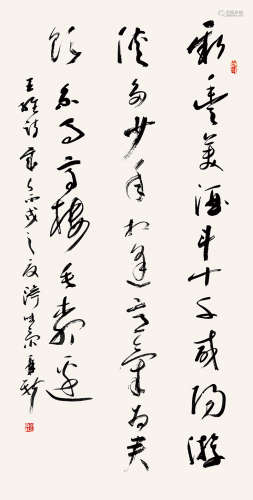 新豐美酒斗十千咸陽游
俠多少年相逢意氣為君
飲系馬高樓垂柳邊
王維詩 丙戌之夏